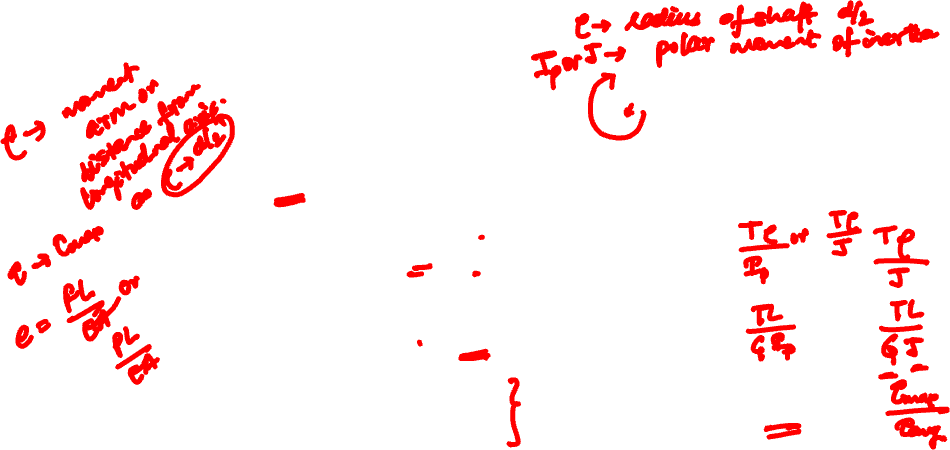 τ → radius of shaft d/2
Ip or J → polar moment of inertia
ρ → moment
arm or
distance from
longitudinal axis.
as τ → d/2
τ → τmax
e = PL/EA, or
PL/EA
Tρ/Ip or Tρ/J Tρ/J
TL/GIp TL/GJ
τmax/τavg.